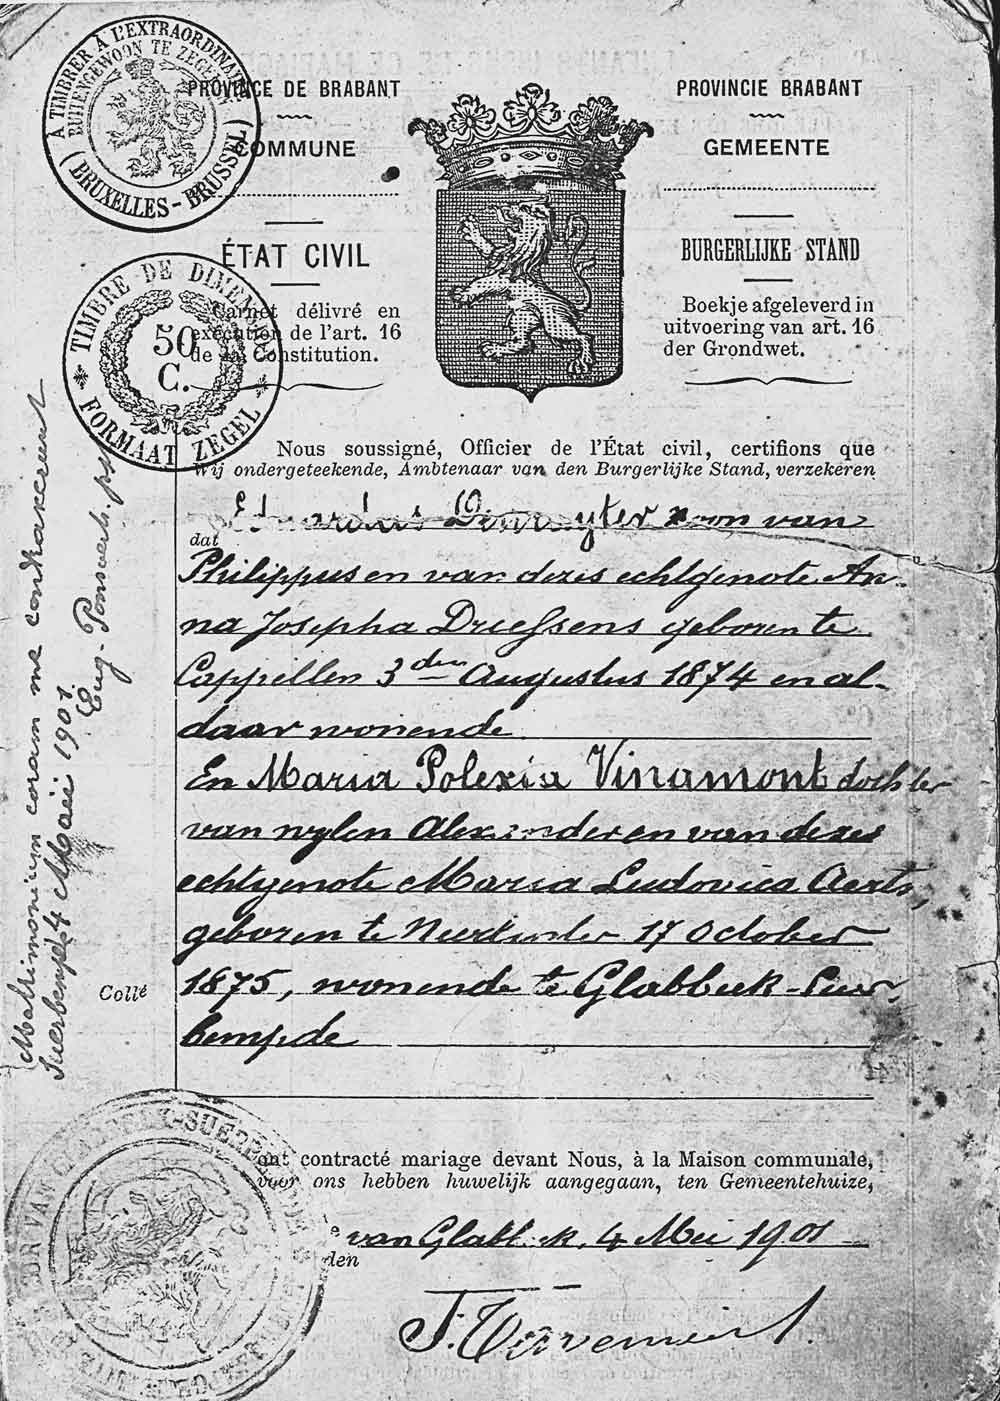 À TIMBRER À L'EXTRAORDINAIRE
BUITENGEWOON TE ZEGELEN
(BRUXELLES - BRUSSEL)
PROVINCE DE BRABANT
COMMUNE
ÉTAT CIVIL
Carnet délivré en
exécution de l'art. 16
de la Constitution.
PROVINCIE BRABANT
GEMEENTE
BURGERLIJKE STAND
Boekje afgeleverd in
uitvoering van art. 16
der Grondwet.
TIMBRE DE DIMENSION
50
C.
FORMAAT ZEGEL
Nous soussigné, Officier de l'État civil, certifions que
Wij ondergeteekende, Ambtenaar van den Burgerlijke Stand, verzekeren
dat Eduardus zoon van
Philippus en van dezes echtgenote An-
na Josepha Driessens geboren te
Cappellen 3den Augustus 1874 en al-
daar wonende
En Maria Polexia Vinamont dochter
van wylen Alexander en van dezes
echtgenote Maria Ludovica Aerts,
geboren te 17 October
1875, wonende te Glabbeek-Suer-
bempde
Collé
Matrimonium coram me
Suerbempde 4 Maii 1901.
Eug.
ont contracté mariage devant Nous, à la Maison communale,
voor ons hebben huwelijk aangegaan, ten Gemeentehuize,
van Glabbeek, 4 Mei 1901
den